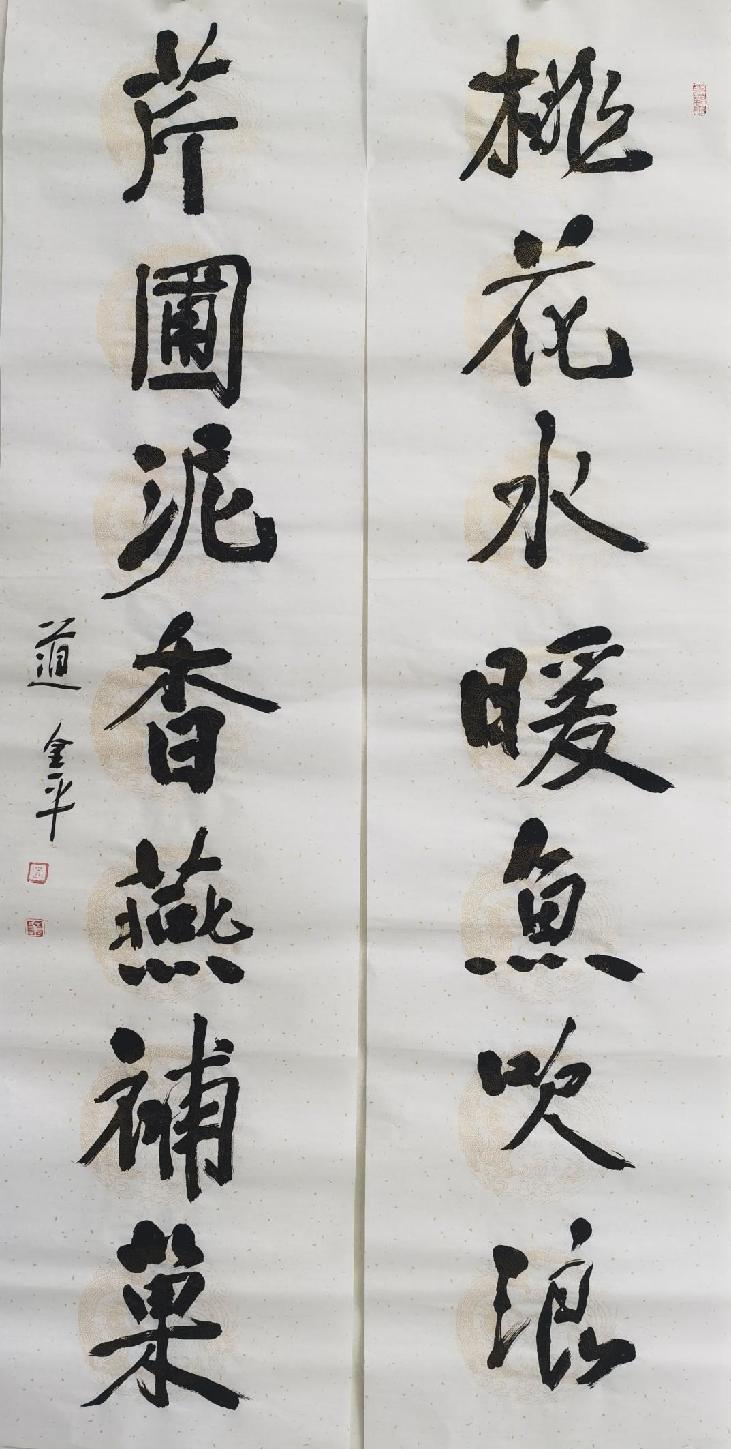 桃花水暖魚吹浪
芹圃泥香燕補菓
道 金平